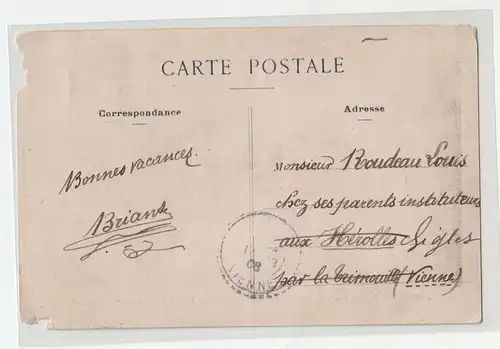 CARTE POSTALE
Correspondance
Adresse
Bonnes vacances.
Briant
Monsieur Roudeau Louis
chez ses parents instituteurs
aux Hérolles
par la Trimouille (Vienne)
08
VIENNE